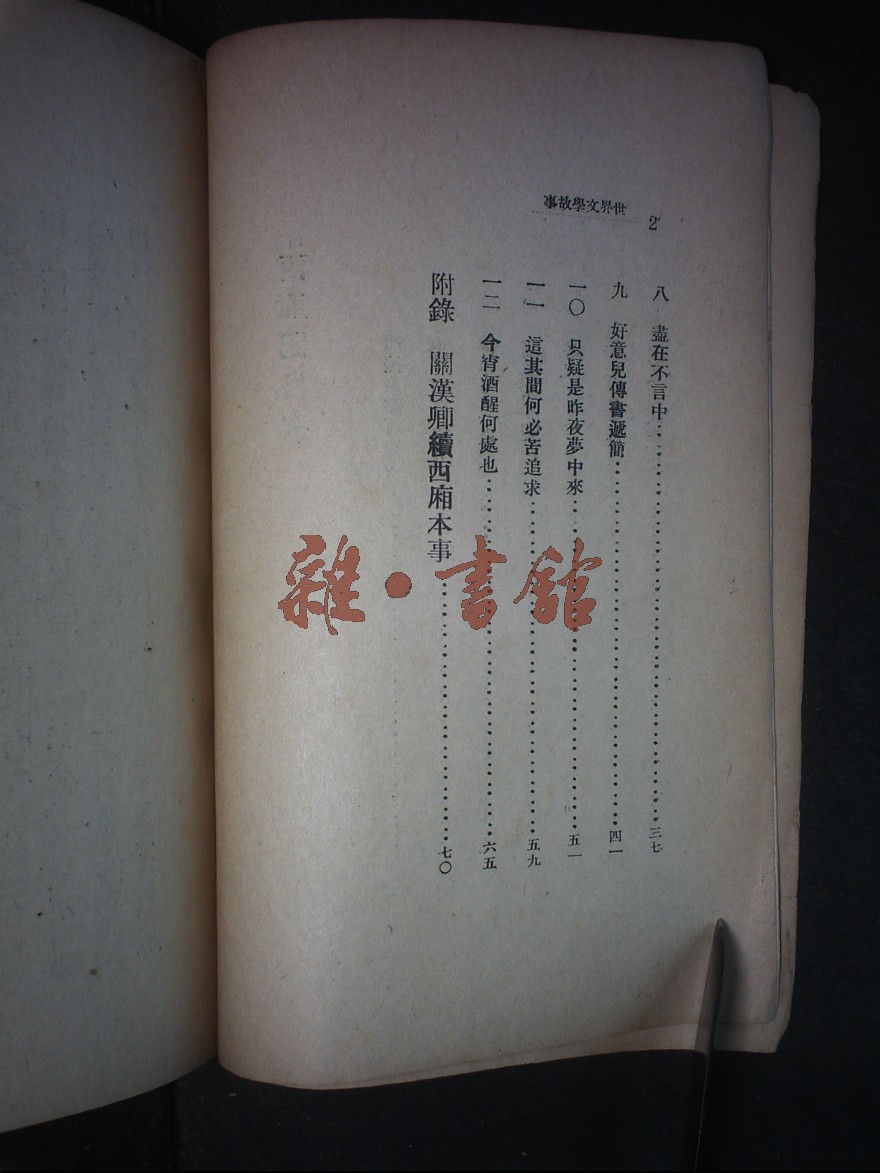 世界文學故事
2
八 盡在不言中……三七
九 好意兒傳書遞簡……四一
一〇 只疑是昨夜夢中來……五一
一一 這其間何必苦追求……五九
一二 今宵酒醒何處也……六五
附錄 關漢卿續西廂本事……七〇
雜·書館